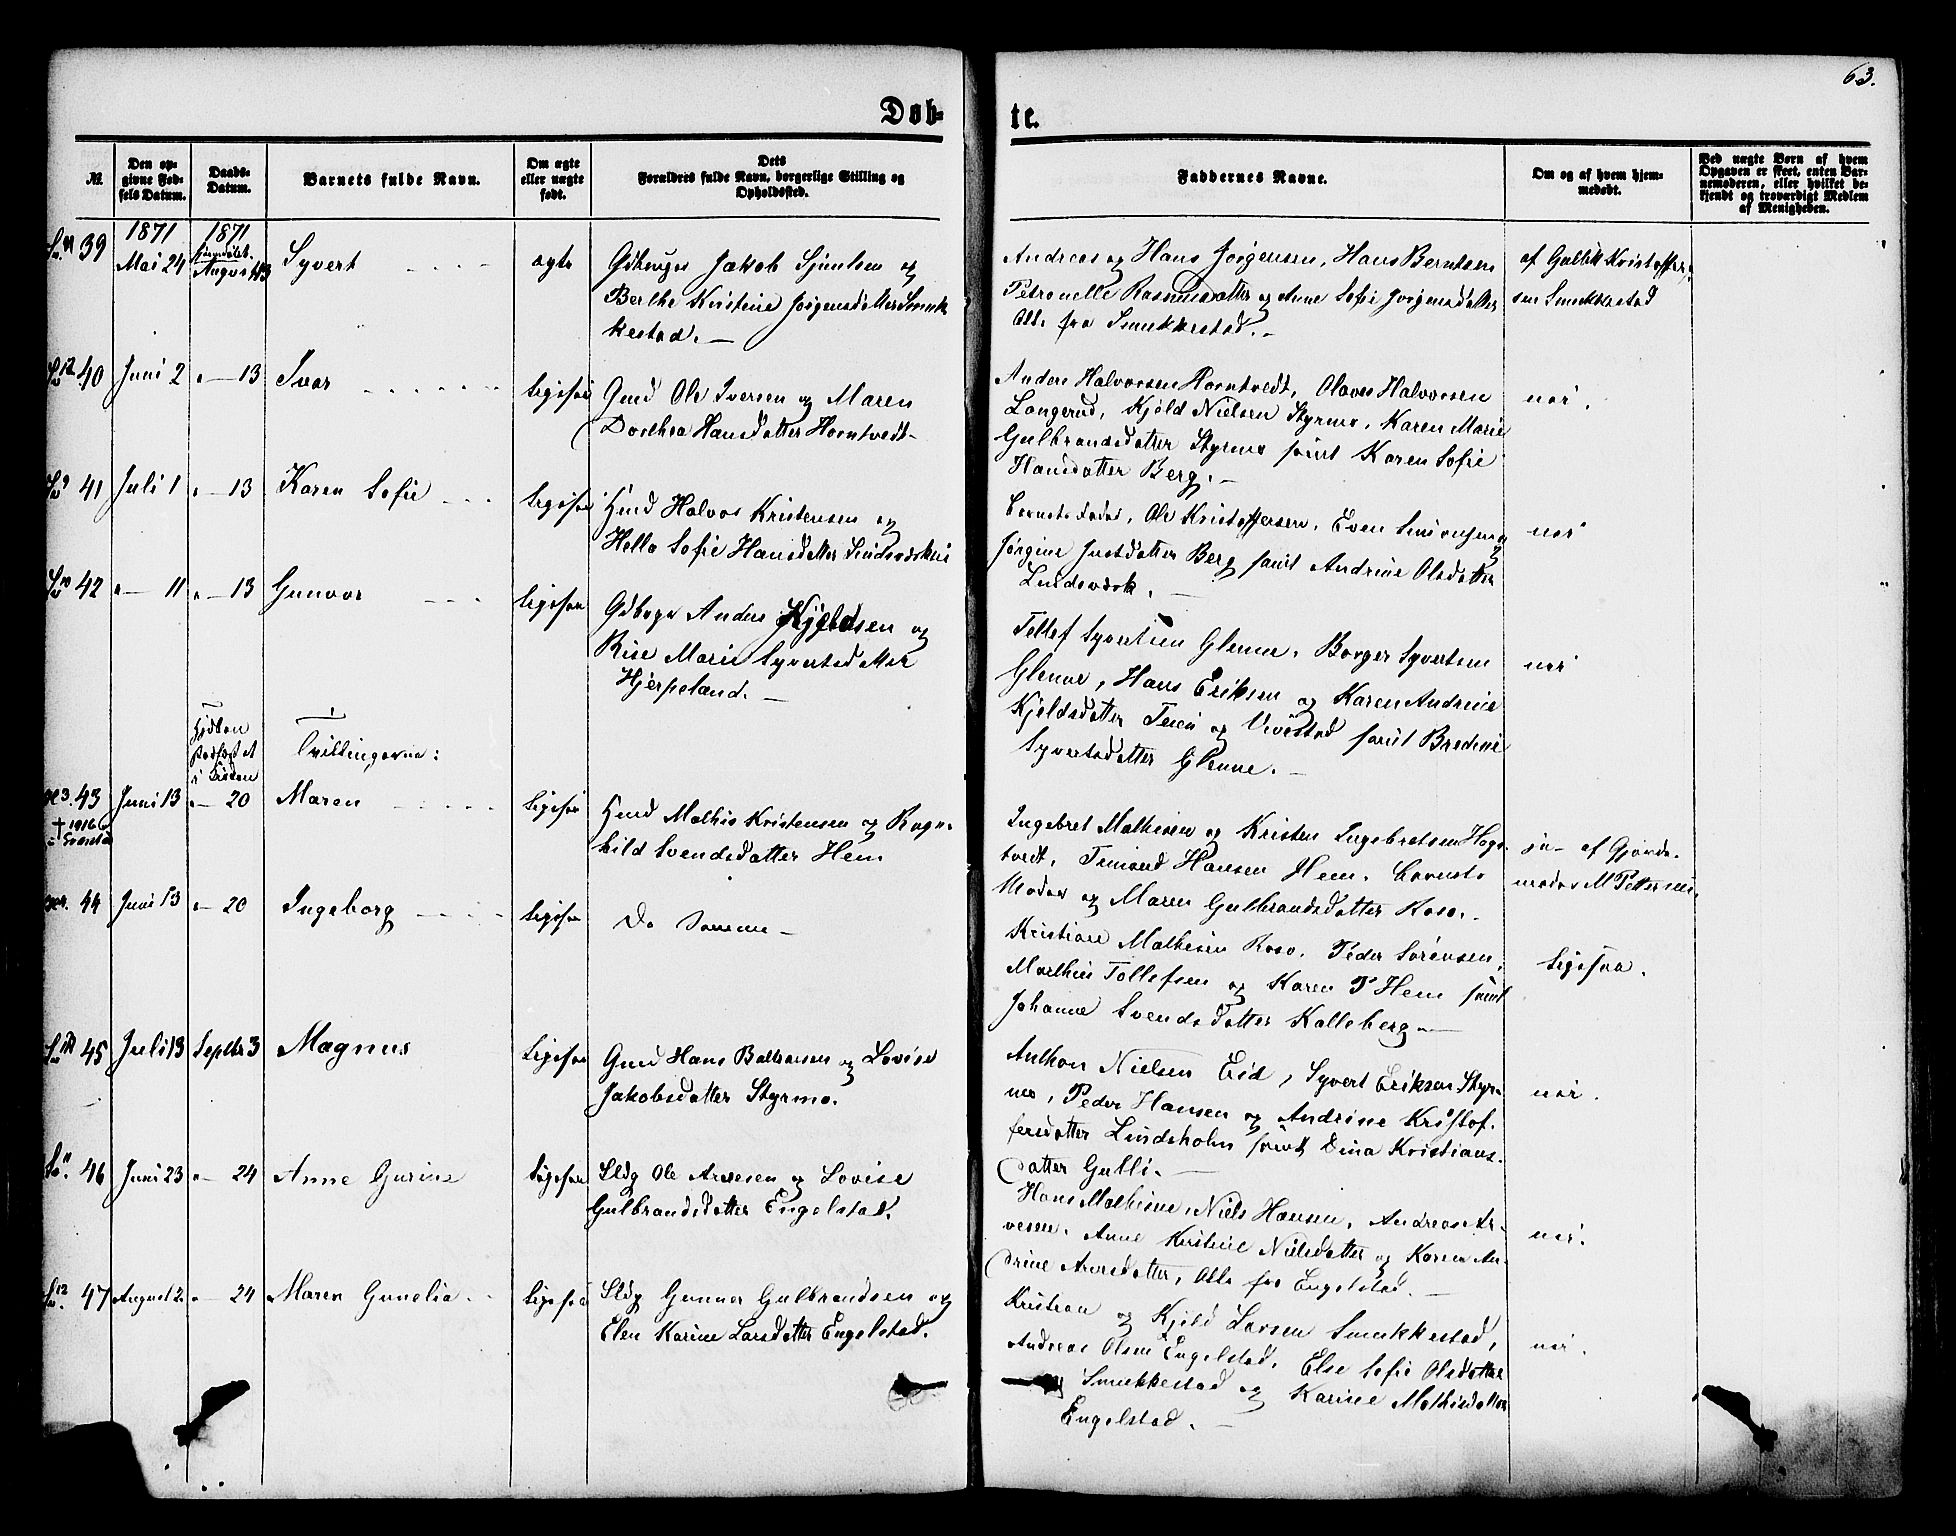 63.
Døb-
te.
№
Den op-
givne Fød-
sels Datum.
Daabs-
Datum.
Barnets fulde Navn.
Om ægte
eller uægte
født.
Dets
Forældres fulde Navn, borgerlige Stilling og
Opholdssted.
Faddernes Navne.
Om og af hvem hjem-
medøbt.
Ved uægte Børn af hvem
Opgaven er skeet, enten Bar-
nemoderen, eller hvilket be-
kjendt og troværdigt Medlem
af Menigheden.
1871
1871
39
Mai 24
August 13
Syvert
ægte
Jakob Simelsen og
Berthe Kristine Jørgensdatter Smuk
kestad. —
Andreas og Hans Jørgensen, Hans Berntsen
Petronelle Rasmusdatter og Anne Sofie Jørgensdatter
Alle fra Smukkestad. —
af Gullik Kristoffer-
sen Smukkestad
40
Juni 2
" — 13
Ivar
Ligesaa
Gmd Ole Iversen og Maren
Dorthea Hansdatter Horntvedt —
Anders Halvorsen Horntvedt, Olaves Halvorsen
Langerud, Kjøld Nielsen Styrmo, Karen Marie
Gulbrandsdatter Styrmo samt Karen Sofie
Hansdatter Berg. —
nei.
41
Juli 1
" — 13
Karen Sofie
Ligesaa
Hmd Halvor Kristensen og
Helle Sofie Hansdatter
Barnets Fader, Ole Kristoffersen, Even Simensen og
Jørgine Justdatter Berg samt Andrine Olsdatter
nei
42
" — 11
" — 13
Gunvor
Ligesaa
Anders Kjeldsen og
Rise Marie Syvertsdatter
Hjerpeland. —
Tellef Syvertsen Glenne, Borger Syvertsen
Glenne, Hans Eriksen og Karen Andrine
Kjeldsdatter Teien og Vivestad samt Bredine
Syvertsdatter Glenne. —
nei
Tvillingerne:
43
Juni 13
" — 20
Maren
Ligesaa
† 1916
Hmd Mathis Kristensen og Ragn-
hild Svendsdatter Hem
Ingebret Mathisen og Kristen Ingebretsen Hogs-
tvedt, Simond Hansen Hem, Barnets
Moder og Maren Gulbrandsdatter Roso. —
ja — af Gjorde-
moder M Pettersen
44
Juni 13
" — 20
Ingeborg
Ligesaa
De Samme —
Kristian Mathisen Roso, Peder Sørensen,
Mathis Tollefsen og Karen P Hem samt
Johanne Svendsdatter Kalleberg —
Ligesaa.
45
Juli 13
Septbr 3
Magnus
Ligesaa
Gmd Hans Baltsersen og Lovise
Jakobsdatter Styrmo.
Anthon Nielsen Eid, Syvert Eriksen Styr-
mo, Peder Hansen og Andrine Kristof-
fersdatter Lindsholm samt Dina Kristians-
datter Gulli. —
nei.
46
Juni 23
" — 24
Anne Gurine
Ligesaa
Sldg Ole Arvesen og Lovise
Gulbrandsdatter Engelstad.
Hans Mathisen, Niels Hansen, Andreas Ar-
vesen, Anne Kristine Nielsdatter og Karen An-
drine Arvesdatter, Alle fra Engelstad. —
nei.
47
August 2
" — 24
Maren Gunelia
Ligesaa
Sldg Gunner Gulbrandsen og
Elen Karine Larsdatter Engelstad.
Kristian og Kjøld Larsen Smukkestad,
Andreas Olsen Engelstad, Else Sofie Olsdatter
Smukkestad og Karine Mathisdatter
Engelstad. —
nei.